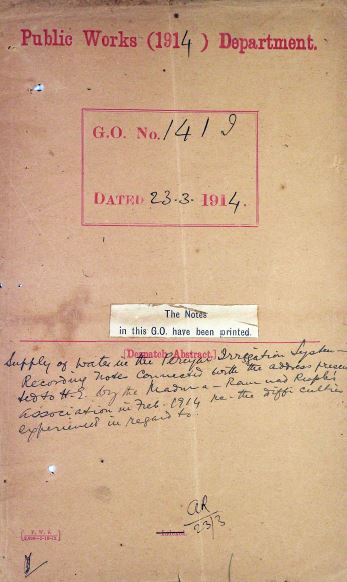 Public Works (1914) Department.
G.O. No. 1419
DATED 23-3-1914.
The Notes
in this G.O. have been printed.
[Despatch Abstract.]
Supply of water in the Periyar Irrigation System—
Recording notes connected with the address presen
ted to H.E. by the Madura-Ramnad People's
Association in Feb. 1914 re- the difficulties
experienced in regard to.
AR
23/3